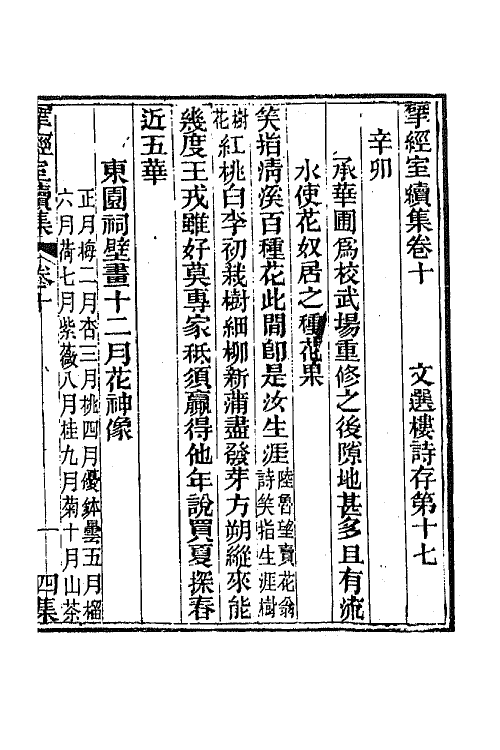 揅經室續集卷十　　文選樓詩存第十七
辛卯
承華圃爲校武場重修之後隙地甚多且有流
水使花奴居之種花果
笑指淸溪百種花此間卽是汝生涯陸魯望賣花翁詩笑指生涯樹
樹紅桃白李初栽樹細柳新蒲盡發芽方朔縱來能
花
幾度王戎雖好莫專家秪須贏得他年說買夏探春
近五華
東園祠壁畫十二月花神像
正月梅二月杏三月桃四月優鉢曇五月榴
六月荷七月紫薇八月桂九月菊十月山茶
揅經室續集　卷十　一　四集